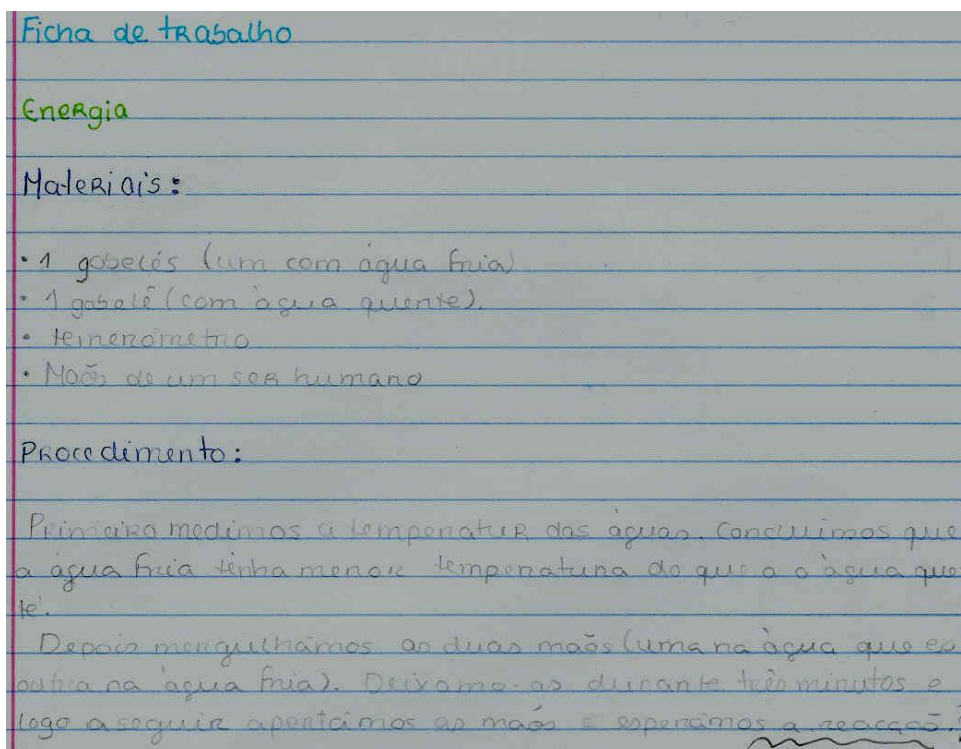 Ficha de trabalho
Energia
Materiais:
• 1 gobelés (um com água fria)
• 1 gobelé (com àgua quente).
• termenometro
• Maõs de um ser humano
Procedimento:
Primeiro medimos a temperatur das àguas. Concluimos que
a água fria tinha menor temperatura do que a o àgua que
te.
Depois mergulhámos as duas maõs (uma na àgua que
outra na àgua fria). Deixamo-as durante três minutos e
logo a seguir apertámos as maõs e esperámos a reacçaõ.